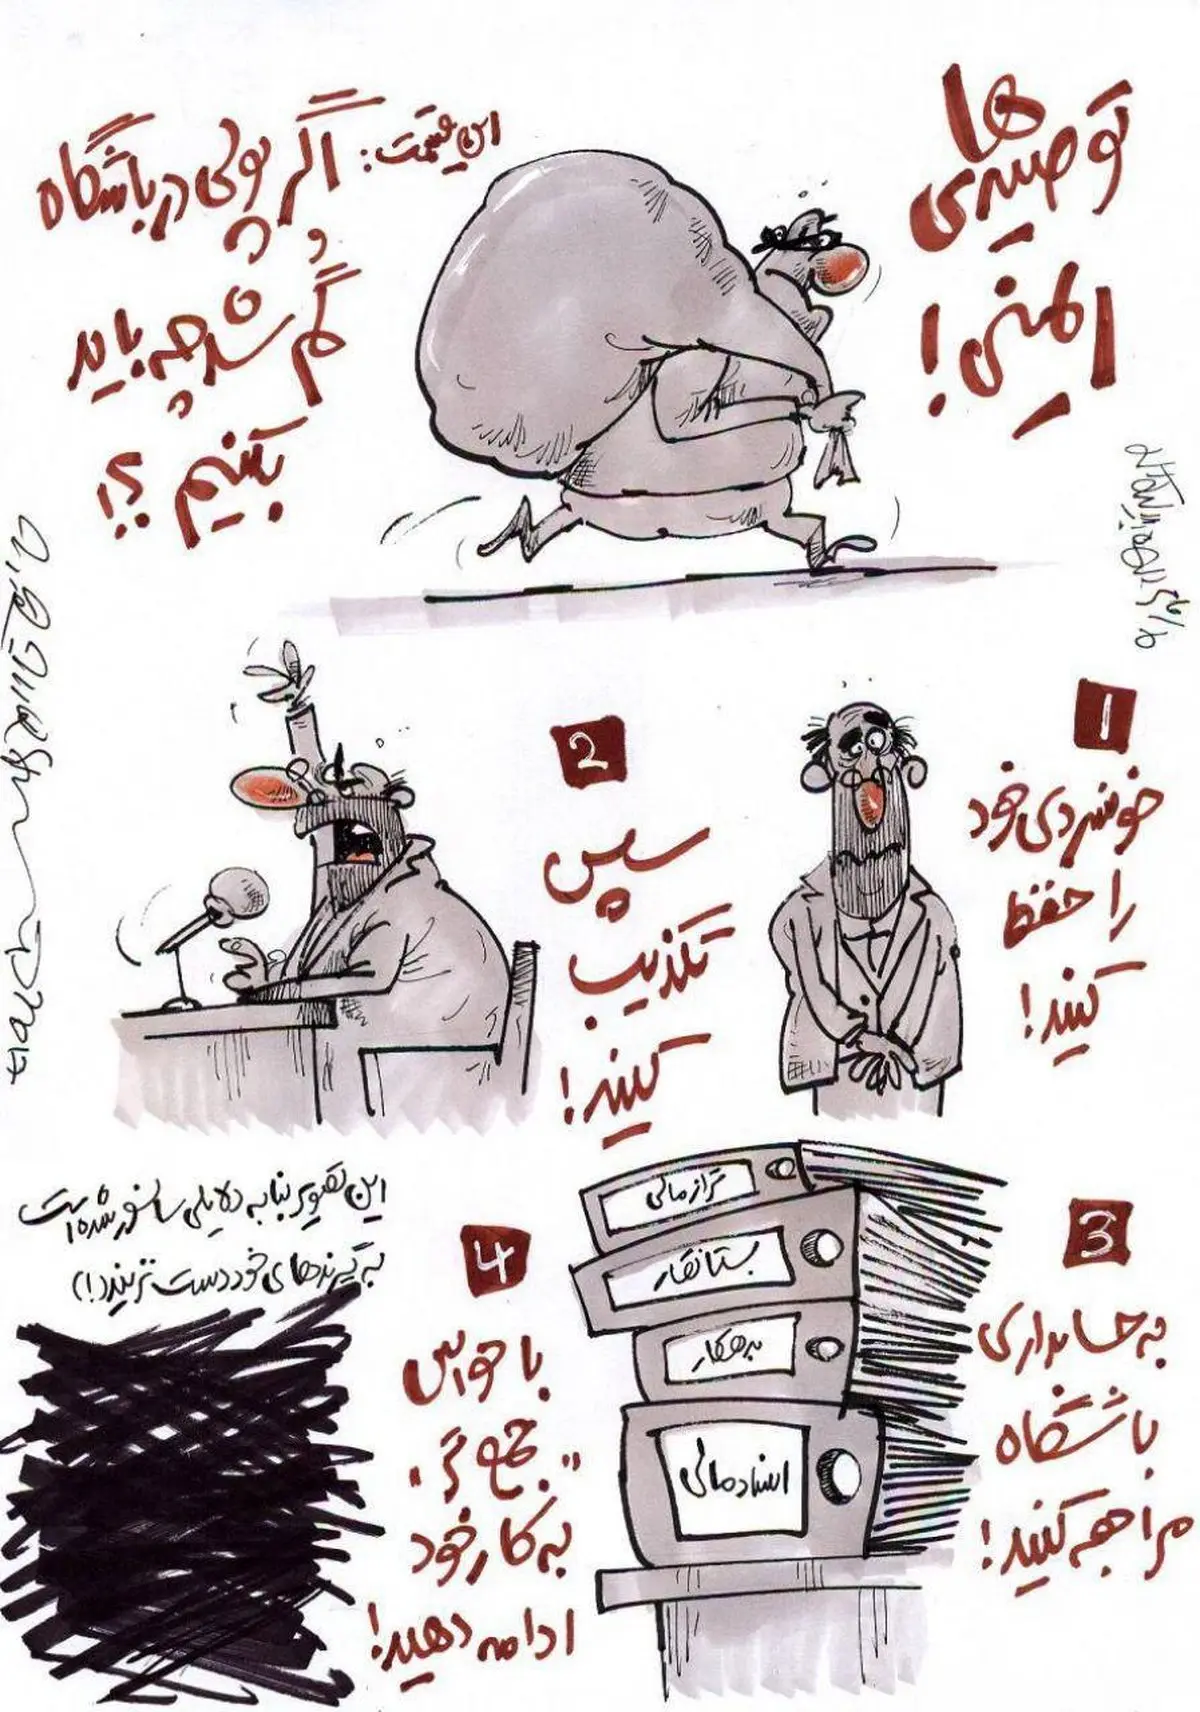 توصیه‌ی
ها
ایمنی!
این قسمت:
اگر پولی در باشگاه
گم شد چه باید
بکنیم ؟!
1
خونسردی خود
را حفظ
کنید!
2
سپس
تکذیب
کنید!
3
به حسابداری
باشگاه
مراجعه کنید!
ترازمالی
بستانکار
بدهکار
اسناد مالی
4
با خوردن
به کار خود
ادامه دهید!
این تصویر بنا به دلایلی سانسور شده است
به گیرنده‌های خود دست نزنید(!)